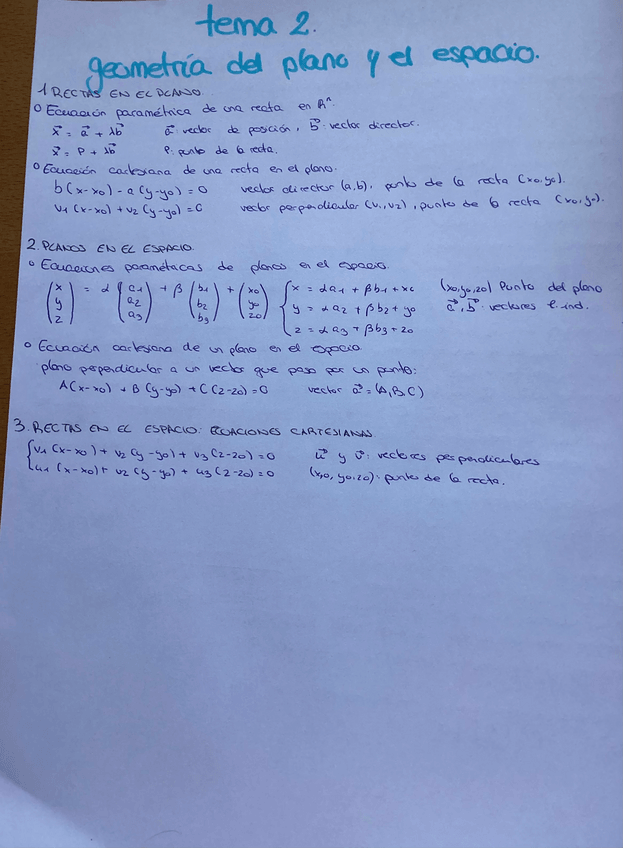 tema 2.
geometría del plano y el espacio.
1 RECTAS EN EL PLANO.
o Ecuación paramétrica de una recta en ℝⁿ.
x⃗ = a⃗ + λb⃗ a⃗: vector de posición, b⃗: vector director.
x⃗ = P + λb⃗ P: punto de la recta.
o Ecuación cartesiana de una recta en el plano.
b(x-x0) - a(y-y0) = 0 vector director (a,b), punto de la recta (x0,y0).
v1(x-x0) + v2(y-y0) = 0 vector perpendicular (v1,v2), punto de la recta (x0,y0).
2. PLANOS EN EL ESPACIO.
o Ecuaciones paramétricas de planos en el espacio.
(x y z) = α (a1 a2 a3) + β (b1 b2 b3) + (x0 y0 z0) { x = αa1 + βb1 + x0 (x0,y0,z0) Punto del plano
y = αa2 + βb2 + y0 a⃗, b⃗: vectores l.ind.
z = αa3 + βb3 + z0
o Ecuación cartesiana de un plano en el espacio
plano perpendicular a un vector que pasa por un punto:
A(x-x0) + B(y-y0) + C(z-z0) = 0 vector a⃗ = (A,B,C)
3. RECTAS EN EL ESPACIO: ECUACIONES CARTESIANAS.
{ v1(x-x0) + v2(y-y0) + v3(z-z0) = 0 u⃗ y v⃗: vectores perpendiculares
u1(x-x0) + u2(y-y0) + u3(z-z0) = 0 (x0, y0, z0): punto de la recta.